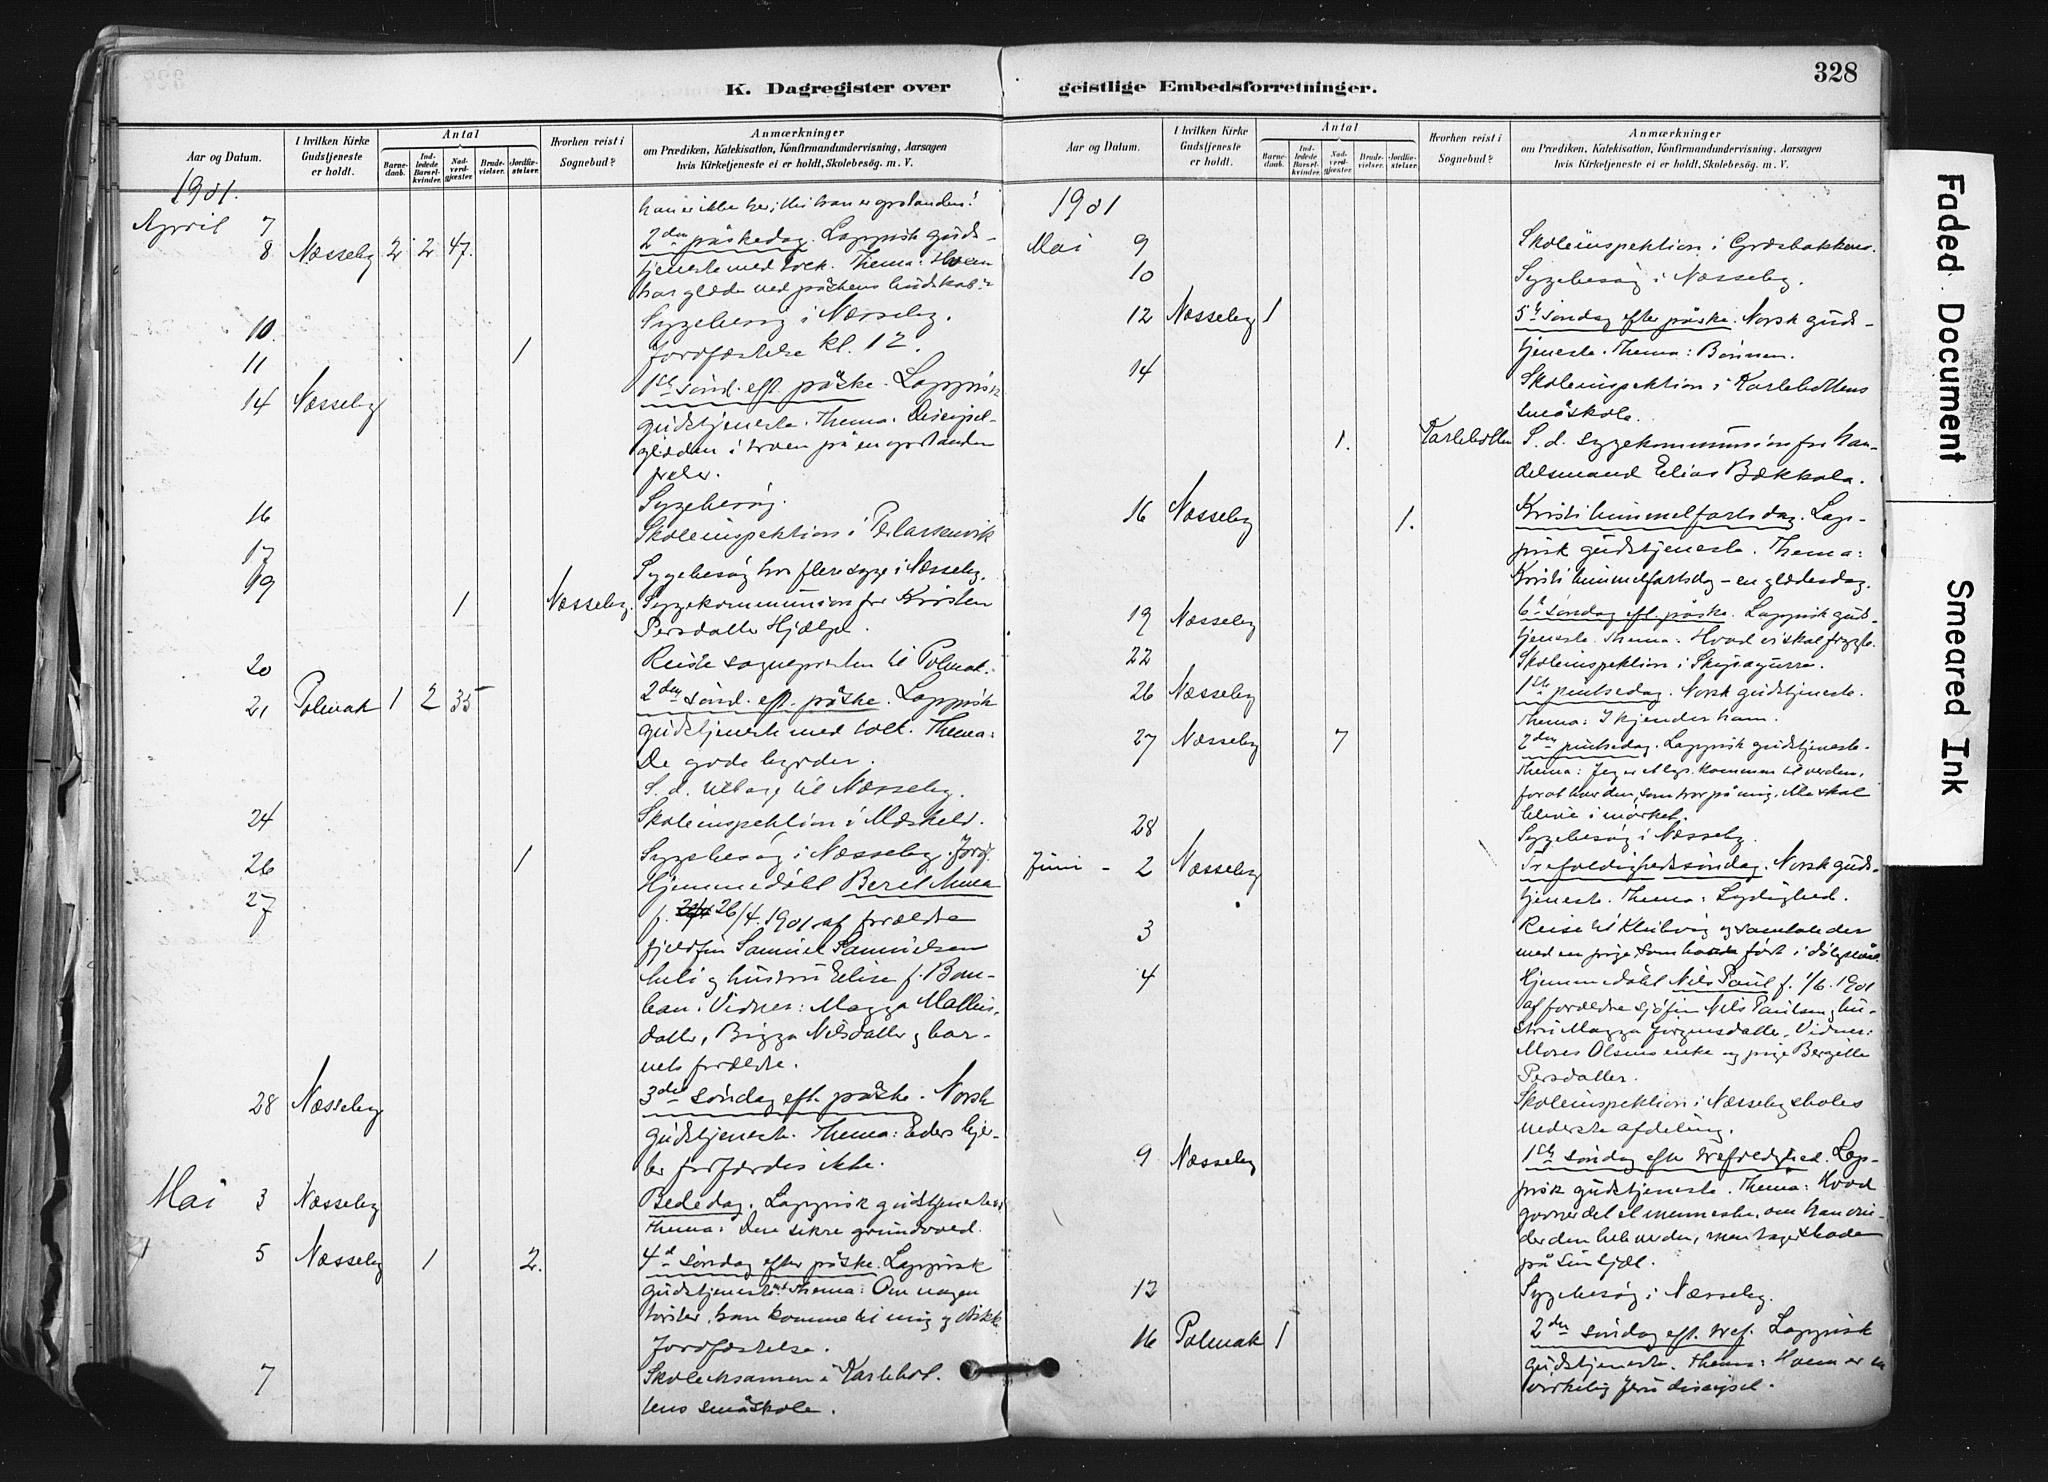 K. Dagregister over
1901.
Aar og Datum.
I hvilken Kirke Gudstjeneste er holdt.
Antal
Barne-daab.
Ind-ledede Barsel-kvinder.
Nad-verd-gjæster.
Brude-vielser.
Jordfæ-stelser.
Hvorhen reist i Sognebud?
Anmærkninger
om Prædiken, Katekisation, Konfirmandundervisning, Aarsagen
hvis Kirketjeneste ei er holdt, Skolebesög. m. V.
April 7 han er ikke her, thi han er opstanden!
8 Næsseby 2 2 47. 2den påskedag. Lappisk guds-
tjeneste med tolk. Thema: Hvem
har glæde ved påskens budskab?
10. Sygebesøg i Næsseby.
11 1 Jordfæstelse kl. 12.
14 Næsseby 1ste sønd. eft. påske. Lappisk
gudstjeneste. Thema: Discipel-
glæden i troen på en opstanden
frelser.
16 Sygebesøg.
17 Skoleinspektion i
19 Sygebesøg hos flere syge i Næsseby.
1 Næsseby. Sygekommunion for Kirsten
Persdatter Hjælpe.
20 Reiste sognepresten til Polmak.
21 Polmak 1 2 35 2den sønd. eft. påske. Lappisk
gudstjeneste med tolk. Thema:
De gode hyrder.
S. d. tilbage til Næsseby.
24 Skoleinspektion i Mæskelv.
26 1 Sygebesøg i Næsseby. Jordf.
27 Hjemmedøbt Beret Anna
f. 26/4. 1901 af forældre
fjeldfin Samuel Samuelsen
og hustru Elise f. Bom-
ban. Vidner: Magga Mathis-
datter, Bigga Nilsdatter og bar-
nets forældre.
28 Næsseby 3die søndag eft. påske. Norsk
gudstjeneste. Thema: Eders hjer-
ter forfærdes ikke.
Mai 3 Næsseby Bededag. Lappisk gudstjeneste
Thema: Den sikre grundvold.
5 Næsseby 1 2. 4de søndag efter påske. Lappisk
gudstjeneste. Thema: Om nogen
tørster, han komme til mig og drikke
Jordfæstelse.
7 Skoleeksamen i Karlebot-
tens småskole.
geistlige Embedsforretninger.
328
Aar og Datum.
I hvilken Kirke Gudstjeneste er holdt.
Antal
Barne-daab.
Ind-ledede Barsel-kvinder.
Nad-verd-gjæster.
Brude-vielser.
Jordfæ-stelser.
Hvorhen reist i Sognebud?
Anmærkninger
om Prædiken, Katekisation, Konfirmandundervisning, Aarsagen
hvis Kirketjeneste ei er holdt, Skolebesög. m. V.
1901
Mai 9 Skoleinspektion i Græsbakken.
10 Sygebesøg i Næsseby.
12 Næsseby 1 5te søndag efter påske. Norsk guds-
tjeneste. Thema: Bønnen.
14 Skoleinspektion i Karlebottens
småskole.
1. Karlebotten S. d. sygekommunion for han-
delsmand Elias Bækkala.
16 Næsseby 1. Kristi himmelfartsdag. Lap-
pisk gudstjeneste. Thema:
Kristi himmelfartsdag – en glædesdag.
19 Næsseby 6te søndag eft. påske. Lappisk guds-
tjeneste. Thema: Hvad vi skal frygte.
22 Skoleinspektion i
26 Næsseby 1ste pintsedag. Norsk gudstjeneste.
Thema: I kjender ham.
27 Næsseby 7 2den pintsedag. Lappisk gudstjeneste.
Thema: Jeg er et lys, kommen til verden,
forat hver den, som tror på mig, ikke skal
blive i mørket.
28 Sygebesøg i Næsseby.
Juni – 2 Næsseby Trefoldighedssøndag. Norsk guds-
tjeneste. Thema: Lydighed.
3 Reise til Klubvig og samtale der
med en pige, som havde født i dølgsmål.
4 Hjemmedøbt Nils Paul f. 1/6. 1901
af forældre sjøfin Nils Paulsen og hu-
stru Magga Jørgensdatter. Vidner:
Moses Olsens enke og pige Bergitte
Persdatter.
Skoleinspektion i Næsseby skoles
nederste afdeling.
9 Næsseby 1ste søndag efter trefoldighed. Lap-
pisk gudstjeneste. Thema: Hvad
gavner det et menneske, om han vin-
der den hele verden, men tager skade
på sin sjæl.
12 Sygebesøg i Næsseby.
16 Polmak 1 2den søndag eft. tref. Lappisk
gudstjeneste. Thema: Hvem er en
virkelig Jesu discipel.
Faded Document
Smeared Ink